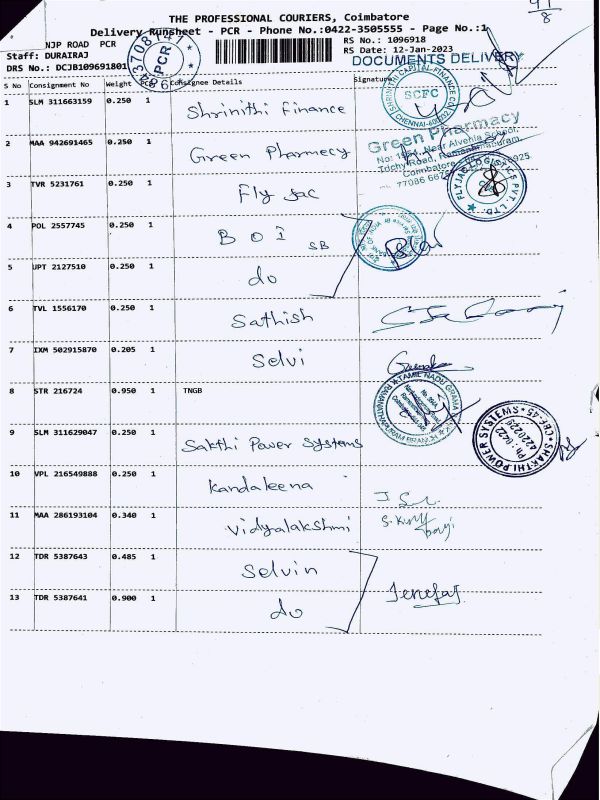 THE PROFESSIONAL COURIERS, Coimbatore
Delivery Runsheet - PCR - Phone No.:0422-3505555 - Page No.:1
NJP ROAD PCR
RS No.: 1096918
Staff: DURAIRAJ
RS Date: 12-Jan-2023
DRS No.: DCJB109691801
DOCUMENTS DELIVERY
PCR
S No Consignment No Weight Pcs Consignee Details Signature
1 SLM 311663159 0.250 1 Shrinithi Finance
SHRINITHI CAPITAL FINANCE CO
SCFC
2 MAA 942691465 0.250 1 Green Pharmecy
Green Pharmacy
Near Alvehia School,
Trichy Road, Ramanathapuram,
3 TVR 5231761 0.250 1 Fly Jac
FLYJAC LOGISTICS PVT. LTD.
4 POL 2557745 0.250 1 BOI SB
5 UPT 2127510 0.250 1 do
6 TVL 1556170 0.250 1 Sathish
7 IXM 502915870 0.205 1 Selvi
8 STR 216724 0.950 1 TNGB
TAMIL NADU GRAMA
9 SLM 311629047 0.250 1 Sakthi Power Systems
SHAKTHI POWER SYSTEMS
CBE-45
Ph : 0422
4220229
10 VPL 216549888 0.250 1 Kandaleena
11 MAA 286193104 0.340 1 Vidyalakshmi
12 TDR 5387643 0.485 1 Selvin
13 TDR 5387641 0.900 1 do